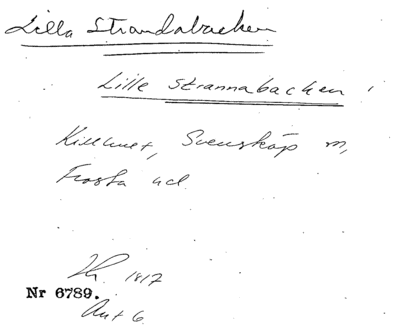 Lilla Strandabacken
Lille Strannabacken
Killhult, Svensköp sn,
Frosta hd
Lh. 1817
Nr 6789.
Akt 6